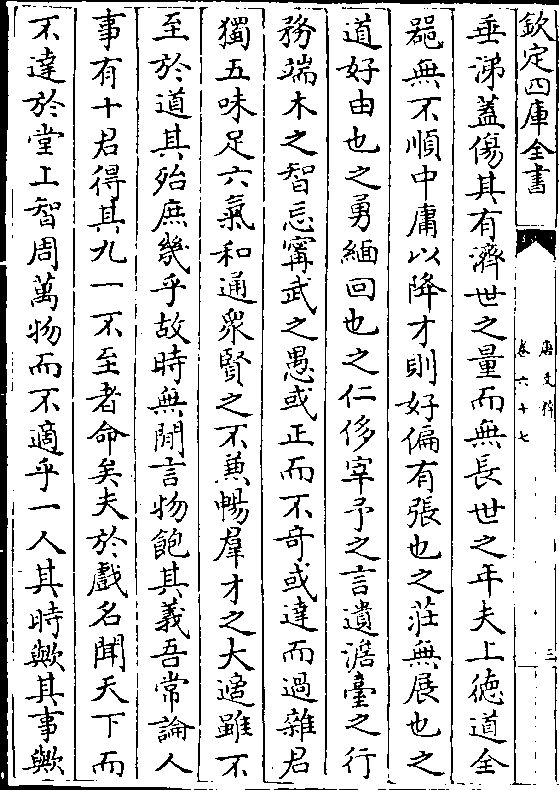 欽定四庫全書
唐文粹
卷六十七
三
垂涕蓋傷其有濟世之量而無長世之年夫上徳道全
噐無不順中庸以降才則好偏有張也之莊無展也之
道好由也之勇緬回也之仁侈宰予之言遺澹臺之行
務端木之智忘寗武之愚或正而不奇或達而過雜君
獨五味足六氣和通衆賢之不兼暢羣才之大適雖不
至於道其殆庶幾乎故時無閒言物飽其義吾常論人
事有十君得其九一不至者命矣夫於戲名聞天下而
不達於堂上智周萬物而不適乎一人其時歟其事歟